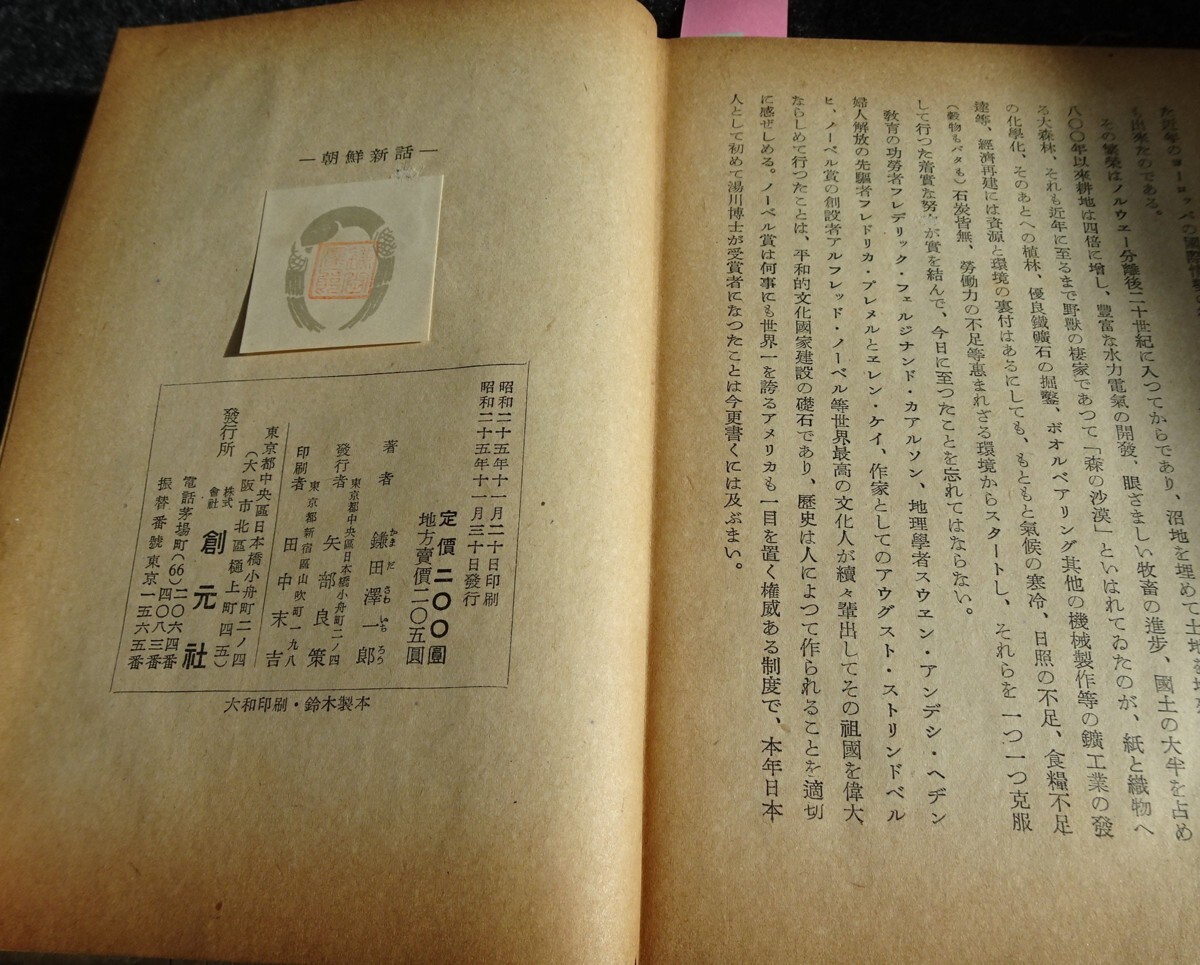 も出來たのである。
その繁榮はノルウェー分離後二十世紀に入つてからであり、沼地を埋めて土地を
八〇〇年以來耕地は四倍に增し、豐富な水力電氣の開發、眼さましい牧畜の進步、國土の大半を占め
る大森林、それも近年に至るまで野獸の棲家であつて「森の沙漠」といはれてゐたのが、紙と織物へ
の化學化、そのあとへの植林、優良鐵礦石の掘鑿、ボオルベアリング其他の機械製作等の鑛工業の發
達等、經濟再建には資源と環境の裏付はあるにしても、もともと氣候の寒冷、日照の不足、食糧不足
(穀物もバタも)石炭皆無、勞働力の不足等惠まれざる環境からスタートし、それらを一つ一つ克服
して行つた着實な努力が實を結んで、今日に至つたことを忘れてはならない。
敎育の功勞者フレデリック・フェルジナンド・カアルソン、地理學者スウェン・アンデシ・ヘヂン
婦人解放の先驅者フレドリカ・プレメルとエレン・ケイ、作家としてのアウグスト・ストリンドベル
ヒ、ノーベル賞の創設者アルフレッド・ノーベル等世界最高の文化人が續々輩出してその祖國を偉大
ならしめて行つたことは、平和的文化國家建設の礎石であり、歷史は人によつて作られることを適切
に感ぜしめる。ノーベル賞は何事にも世界一を誇るアメリカも一目を置く權威ある制度で、本年日本
人として初めて湯川博士が受賞者になつたことは今更書くには及ぶまい。
―朝鮮新話―
昭和二十五年十一月二十日印刷
昭和二十五年十一月三十日發行
定價二〇〇圓
地方賣價二〇五圓
著者 鎌田澤一郎
かまださわいちろう
東京都中央區日本橋小舟町二ノ四
發行者 矢部良策
東京都新宿區山吹町一九八
印刷者 田中末吉
東京都中央區日本橋小舟町二ノ四
(大阪市北區樋上町四五)
發行所 株式會社 創元社
電話茅場町(66)二〇六四番
四〇八三番
振替番號東京一五六五番
大和印刷・鈴木製本